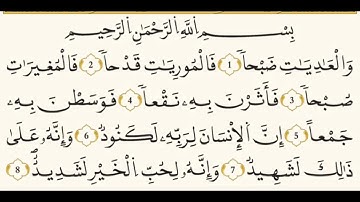 بِسْمِ اللَّهِ الرَّحْمَٰنِ الرَّحِيمِ
وَالْعَادِيَاتِ ضَبْحاً ١ فَالْمُورِيَاتِ قَدْحاً ٢ فَالْمُغِيرَاتِ
صُبْحاً ٣ فَأَثَرْنَ بِهِ نَقْعاً ٤ فَوَسَطْنَ بِهِ
جَمْعاً ٥ إِنَّ الْإِنْسَانَ لِرَبِّهِ لَكَنُودٌ ٦ وَإِنَّهُ عَلَىٰ
ذَٰلِكَ لَشَهِيدٌ ٧ وَإِنَّهُ لِحُبِّ الْخَيْرِ لَشَدِيدٌ ٨